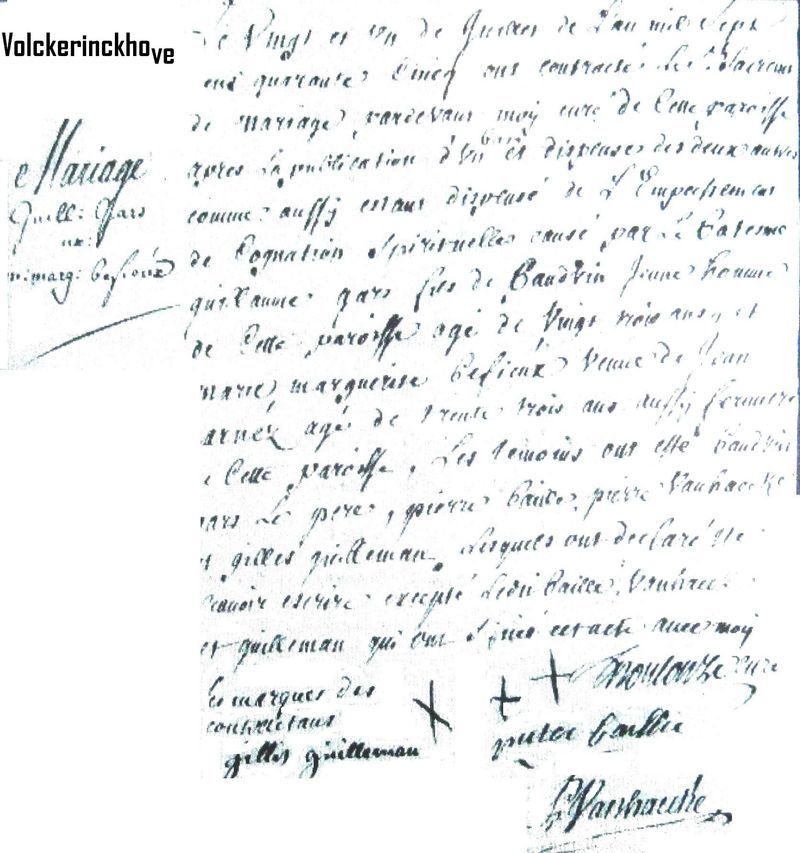 Volckerinckhove
Le Vingt et un de Janvier de L'an mil Sept
cens quarante Cincq ont contracté Le Sacrement
de Mariage pardevant moy curé de Cette paroisse
apres La publication d'un ban et dispense des deux autres
comme aussy estant dispensé de L'Empechement
de Cognation Spirituelle causé par Le Bateme
guillaume gars fils de Baudvin Jeune homme
de Cette paroisse agé de Vingt trois ans, et
marie marguerite Cefieux Veuve de Jean
agé de trente trois ans aussy fermiere
e Cette paroisse, Les temoins ont esté Baudvin
gars Le pere, pierre Caillie, pierre Vanhaecke
et gilles guilleman Lesquels ont declaré ne
scavoir escrire excepté Ledit Caillie, Vanhaecke
et guilleman qui ont signé cet acte avec moy
Mariage
Guill: Gars
ux:
m: marg: Cefieux
Les marques des
contractans
curé
gillis guilleman
pieter Caillie
P Vanhaecke